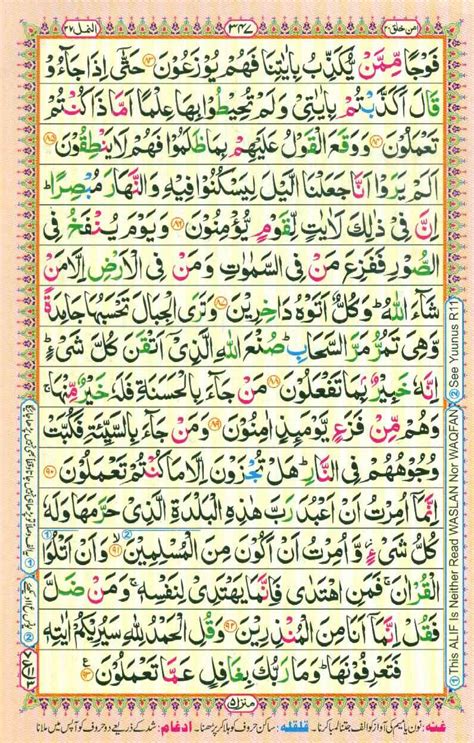 امن خلق ۲۰
۳۴۷
النمل ۲۷
فَوْجًا مِّمَّنْ يُّكَذِّبُ بِاٰيٰتِنَا فَهُمْ يُوْزَعُوْنَ ۝۸۳ حَتّٰۤى اِذَا جَآءُوْ
قَالَ اَكَذَّبْتُمْ بِاٰيٰتِيْ وَلَمْ تُحِيْطُوْا بِهَا عِلْمًا اَمَّا ذَا كُنْتُمْ
تَعْمَلُوْنَ ۝۸۴ وَوَقَعَ الْقَوْلُ عَلَيْهِمْ بِمَا ظَلَمُوْا فَهُمْ لَا يَنْطِقُوْنَ ۝۸۵
اَلَمْ يَرَوْا اَنَّا جَعَلْنَا الَّيْلَ لِيَسْكُنُوْا فِيْهِ وَالنَّهَارَ مُبْصِرًا ؕ
اِنَّ فِيْ ذٰلِكَ لَاٰيٰتٍ لِّقَوْمٍ يُّؤْمِنُوْنَ ۝۸۶ وَيَوْمَ يُنْفَخُ فِي
الصُّوْرِ فَفَزِعَ مَنْ فِي السَّمٰوٰتِ وَمَنْ فِي الْاَرْضِ اِلَّا مَنْ
شَآءَ اللّٰهُ ؕ وَكُلٌّ اَتَوْهُ دَاخِرِيْنَ ۝۸۷ وَتَرَى الْجِبَالَ تَحْسَبُهَا جَامِدَةً
وَّهِيَ تَمُرُّ مَرَّ السَّحَابِ ؕ صُنْعَ اللّٰهِ الَّذِيْۤ اَتْقَنَ كُلَّ شَيْءٍ ؕ
اِنَّهٗ خَبِيْرٌۢ بِمَا تَفْعَلُوْنَ ۝۸۸ مَنْ جَآءَ بِالْحَسَنَةِ فَلَهٗ خَيْرٌ مِّنْهَا ۚ
وَهُمْ مِّنْ فَزَعٍ يَّوْمَئِذٍ اٰمِنُوْنَ ۝۸۹ وَمَنْ جَآءَ بِالسَّيِّئَةِ فَكُبَّتْ
وُجُوْهُهُمْ فِي النَّارِ ؕ هَلْ تُجْزَوْنَ اِلَّا مَا كُنْتُمْ تَعْمَلُوْنَ ۝۹۰
اِنَّمَاۤ اُمِرْتُ اَنْ اَعْبُدَ رَبَّ هٰذِهِ الْبَلْدَةِ الَّذِيْ حَرَّمَهَا وَلَهٗ
كُلُّ شَيْءٍ ۫ وَّاُمِرْتُ اَنْ اَكُوْنَ مِنَ الْمُسْلِمِيْنَ ۝۹۱ وَاَنْ اَتْلُوَا
الْقُرْاٰنَ ۚ فَمَنِ اهْتَدٰى فَاِنَّمَا يَهْتَدِيْ لِنَفْسِهٖ ۚ وَمَنْ ضَلَّ
فَقُلْ اِنَّمَاۤ اَنَا مِنَ الْمُنْذِرِيْنَ ۝۹۲ وَقُلِ الْحَمْدُ لِلّٰهِ سَيُرِيْكُمْ اٰيٰتِهٖ
فَتَعْرِفُوْنَهَا ؕ وَمَا رَبُّكَ بِغَافِلٍ عَمَّا تَعْمَلُوْنَ ۝۹۳
① This ALIF Is Neither Read WASLAN Nor WAQFAN ② See Yuunus R11
منزل ۵
غنه: نون یا میم کی آواز کو الف جتنا لمبا کرنا۔ قلقله: ساکن حروف کو ہلا کر پڑھنا۔ ادغام: شد کے ذریعے دو حروف کو آپس میں ملانا